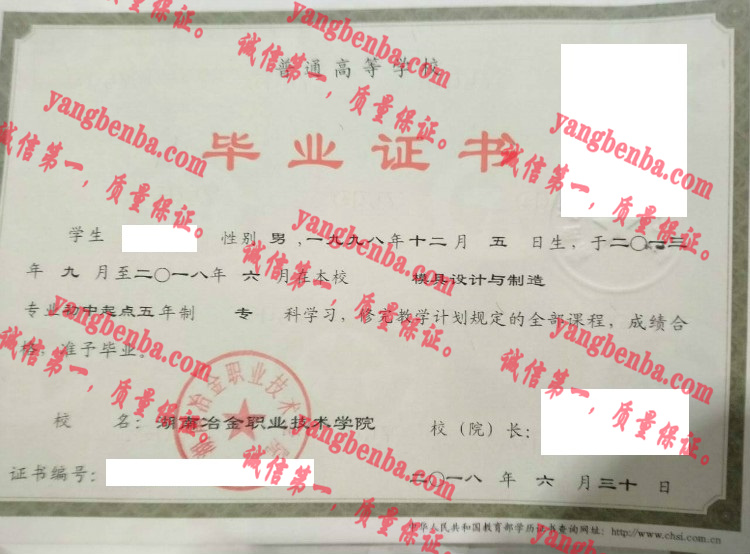 普通高等学校
毕业证书
学生 性别 男 ,一九九八年十二月 五 日生, 于二〇一三
年 九 月至二〇一八年 六 月在本校 模具设计与制造
专业初中起点五年制 专 科学习, 修完教学计划规定的全部课程, 成绩合
格, 准予毕业。
校 名: 湖南冶金职业技术学院
校 (院) 长:
证书编号:
二〇一八 年 六 月 三十 日
中华人民共和国教育部学历证书查询网址: http://www.chsi.com.cn
湖南冶金职业技术学院
yangbenba.com
诚信第一, 质量保证。
yangbenba.com
诚信第一, 质量保证。
yangbenba.com
诚信第一, 质量保证。
yangbenba.com
诚信第一, 质量保证。
yangbenba.com
诚信第一, 质量保证。
yangbenba.com
诚信第一, 质量保证。
yangbenba.com
诚信第一, 质量保证。
yangbenba.com
诚信第一, 质量保证。